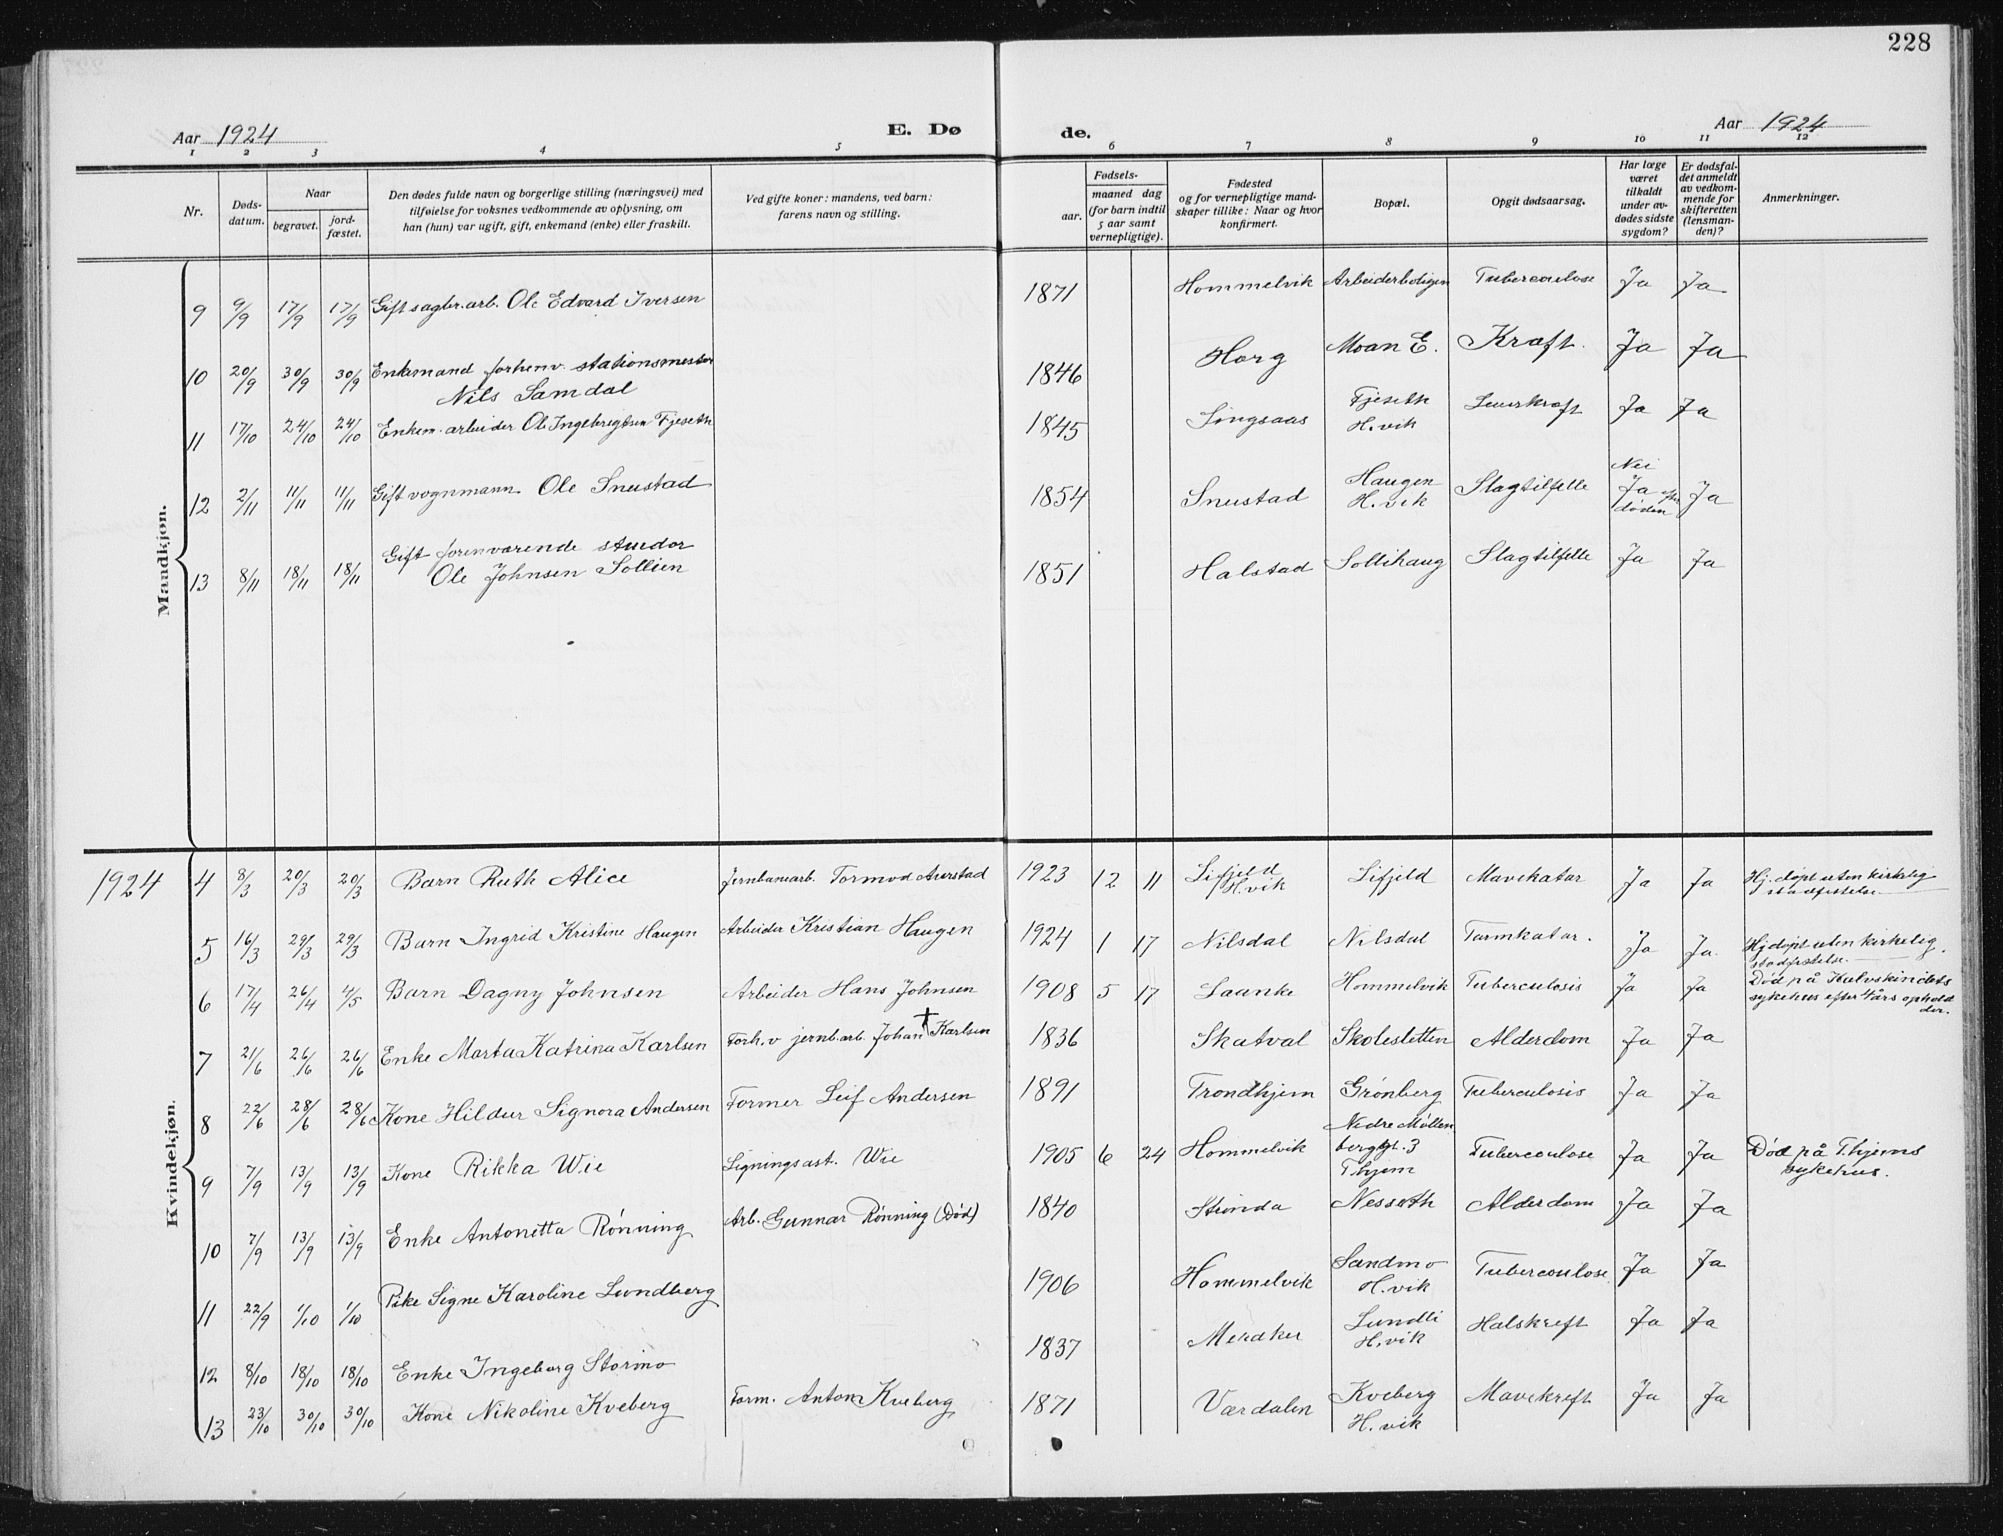 228
Aar 1924 E. Dø de. Aar 1924
1 2 3 4 5 6 7 8 9 10 11 12
Nr.
Døds-
datum.
Naar
begravet.
jord-
fæstet.
Den dødes fulde navn og borgerlige stilling (næringsvei) med
tilføielse for voksnes vedkommende av oplysning, om
han (hun) var ugift, gift, enkemand (enke) eller fraskilt.
Ved gifte koner: mandens, ved barn:
farens navn og stilling.
Fødsels-
aar.
maaned dag
(for barn indtil
5 aar samt
vernepligtige).
Fødested
og for vernepligtige mand-
skaper tillike: Naar og hvor
konfirmert.
Bopæl.
Opgit dødsaarsag.
Har læge
været
tilkaldt
under av-
dødes sidste
sygdom?
Er dødsfal-
det anmeldt
av vedkom-
mende for
skifteretten
(lensman-
den)?
Anmerkninger.
Maadkjøn.
9 9/9 17/9 17/9 Gift sagbr.arb. Ole Edvard Iversen 1871 Hommelvik Arbeiderboligen Tuberculose Ja Ja
10 20/9 30/9 30/9 Enkemand forhenv. stationsmester
Nils Samdal 1846 Horg Moan E. Kræft. Ja Ja
11 17/10 24/10 24/10 Enkem. arbeider Ole Ingebregtsen Fjeseth 1845 Singsaas Fjeseth
H.vik Leverkræft Ja Ja
12 2/11 11/11 11/11 Gift vognmann Ole Snustad 1854 Snustad Haugen
H.vik Slagtilfelle Nei
Ja efter
døden Ja
13 8/11 18/11 18/11 Gift forenværende
Ole Johnsen Sollien 1851 Halstad Sollihaug Slagtilfelle Ja Ja
1924
Kvindekjøn.
4 8/3 20/3 20/3 Barn Ruth Alice Jernbanearb. Tormod Aunstad 1923 12 11 Lifjeld
H.vik Lifjeld Mavekatar Ja Ja Hj.døpt uten kirkelig
stadfestelse.
5 16/3 29/3 29/3 Barn Ingrid Kristine Haugen Arbeider Kristian Haugen 1924 1 17 Nilsdal Nilsdal Tarmkatar. Ja Ja. Hj.døpt uten kirkelig
stadfestelse.
6 17/4 26/4 4/5 Barn Dagny Johnsen Arbeider Hans Johnsen 1908 5 17 Laanke Hommelvik Tuberculosis Ja Ja Død på Kalvskindets
sykehus efter 4 års ophold
der.
7 21/6 26/6 26/6 Enke Marta Katrina Karlsen Forh.v jernb.arb. Johan † Karlsen 1836 Skatval Skolesletten Alderdom Ja Ja
8 22/6 28/6 28/6 Kone Hildur Signora Andersen Former Leif Andersen 1891 Trondhjem Grønberg Tuberculosis Ja Ja
9 7/9 13/9 13/9 Kone Rikka Wie Ligningsast. Wie 1905 6 24 Hommelvik Nedre Møllen
berggt. 3
T.hjem Tuberculose Ja Ja Død på T.hjems
sykehus.
10 7/9 13/9 13/9 Enke Antonetta Rønning Arb. Gunnar Rønning (Død) 1840 Strinda Nesseth Alderdom Ja Ja
11 22/9 1/10 1/10 Pike Signe Karoline Lundberg 1906 Hommelvik Sandmo
H.vik Tuberculose Ja Ja
12 8/10 18/10 18/10 Enke Ingeborg Stormo 1837 Meraker Lundli
H.vik Halskreft Ja Ja
13 23/10 30/10 30/10 Kone Nikoline Kveberg Form. Anton Kveberg 1871 Værdalen Kveberg
H.vik Mavekreft Ja Ja